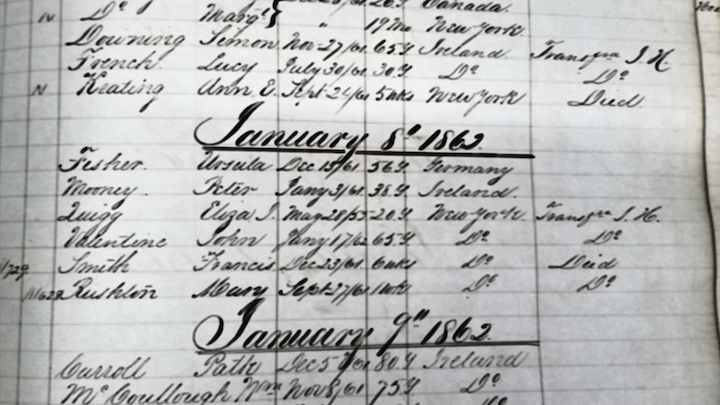 N Do Margt 19 Mo New York.
Downing Simon Nov 27/61 65 Y Ireland. Transfr I. H.
French. Lucy July 30/61 30 Y Do Do
N Keating Ann E. Sept 24/61 5 wks New York Died
January 8th 1862.
Fisher. Ursula Dec 15/61 56 Y Germany
Mooney. Peter Jany 3/61 38 Y Ireland.
Quigg Eliza J. May 28/55 20 Y New York. Transfr I. H.
Valentine John Jany 1 65 Y Do Do
Smith Francis Dec 23/61 6 wks Do Died
Rushton Mary Sept 27/61 1 wk Do Do
January 9th 1862.
Carroll Patk Dec 5/61 80 Y Ireland
McCoullough Wm Nov 8/61 75 Y Do
Do